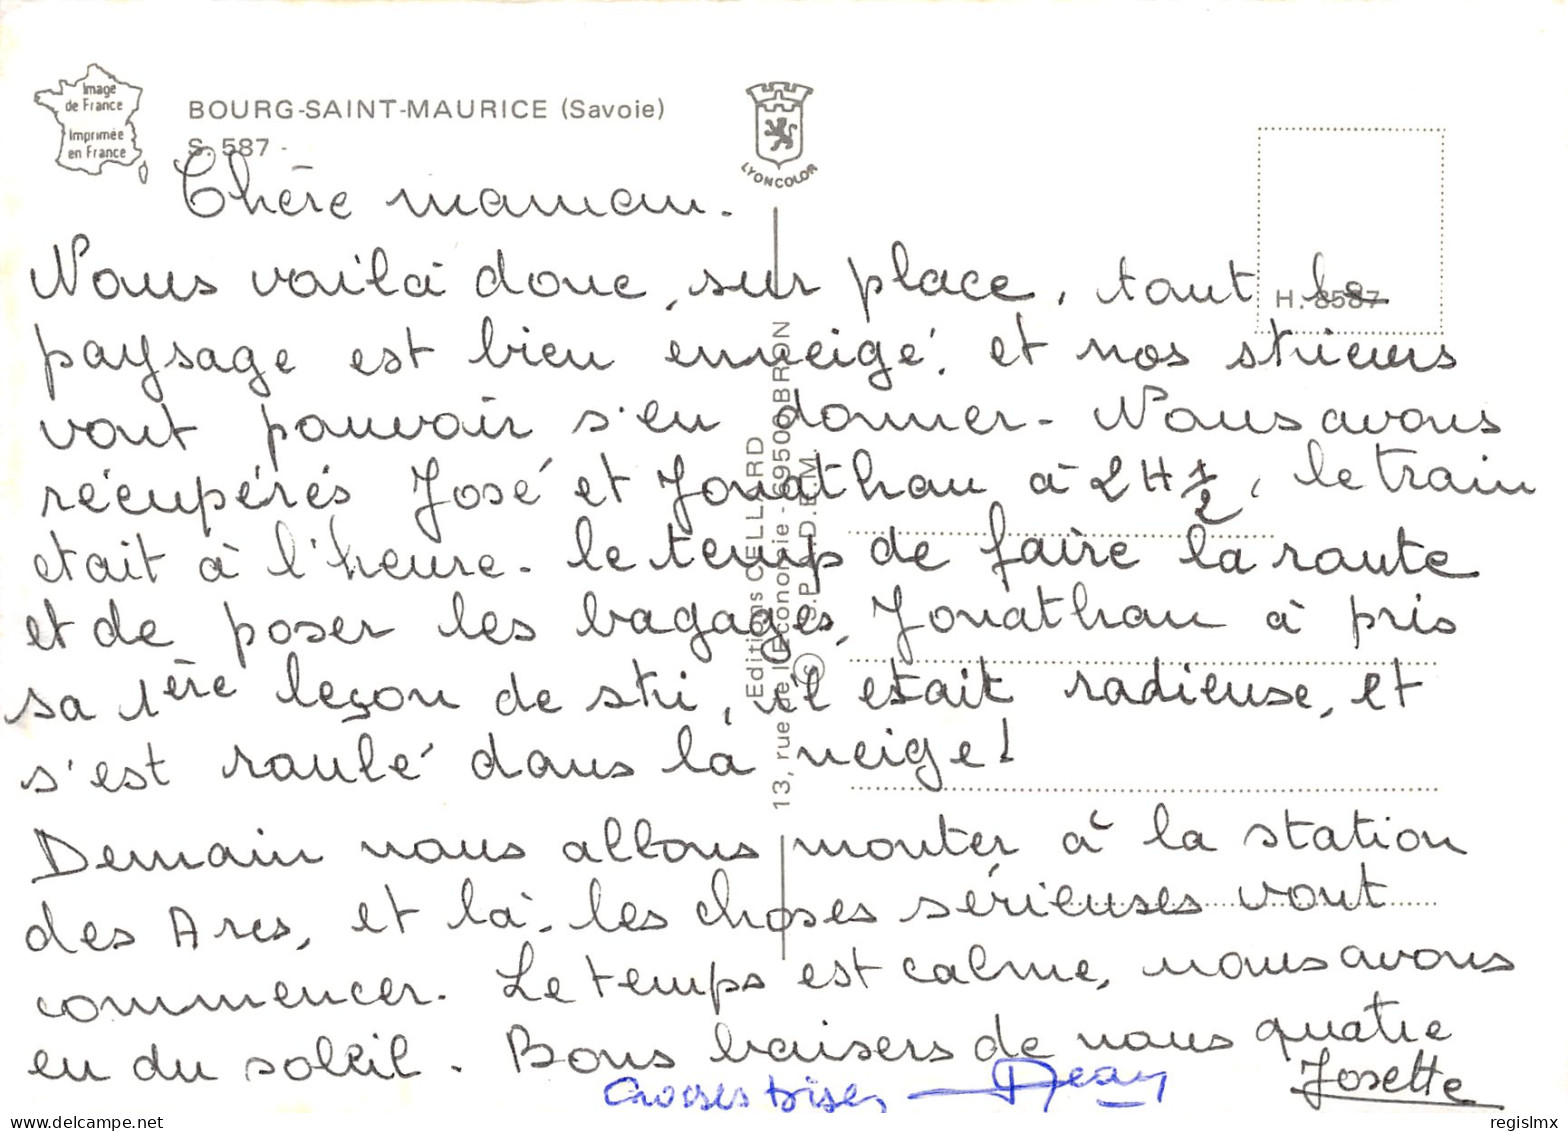 Image
de France
Imprimée
en France
BOURG-SAINT-MAURICE (Savoie)
S. 587 -
LYONCOLOR
H. 8587
Editions CELLARD
13, rue de l'Economie - 69500 BRON
© S.P.A.D.E.M.
Chère maman.
Nous voilà donc, sur place, tout le
paysage est bien enneigé, et nos skieurs
vont pouvoir s'en donner - Nous avons
récupérés José et Jonathan à 2H 1/2, le train
etait à l'heure. le temps de faire la route
et de poser les bagages, Jonathan à pris
sa 1ère leçon de ski, il etait radieuse, et
s'est roulé dans la neige!
Demain nous allons monter à la station
des Arcs, et là, les choses sérieuses vont
commencer. Le temps est calme, nous avons
eu du soleil. Bons baisers de nous quatre
Josette
Grosses bises Jean
regislmx